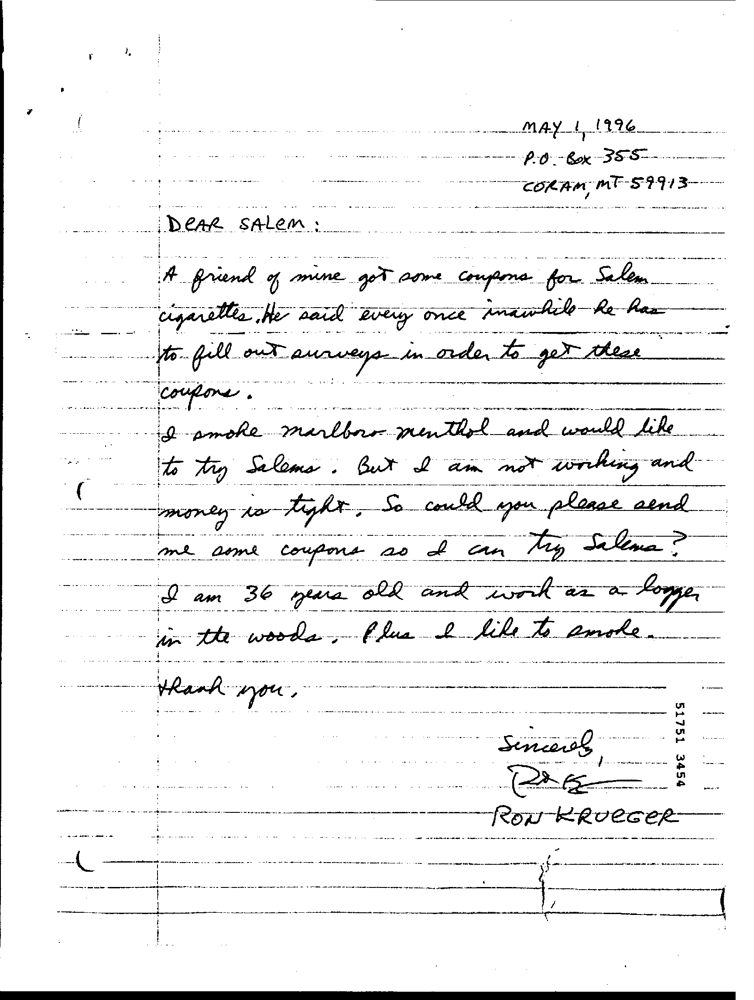 MAY 1, 1996
P.O. Box 355
CORAM, MT 59913
DEAR SALEM:
A friend of mine got some coupons for Salem
cigarettes. He said every once inawhile he has
to fill out surveys in order to get these
coupons.
I smoke marlboro menthol and would like
to try Salems. But I am not working and
money is tight. So could you please send
me some coupons so I can try Salems?
I am 36 years old and work as a logger
in the woods. Plus I like to smoke.
thank you,
Sincerely,
RON KRUEGER
51751 3454